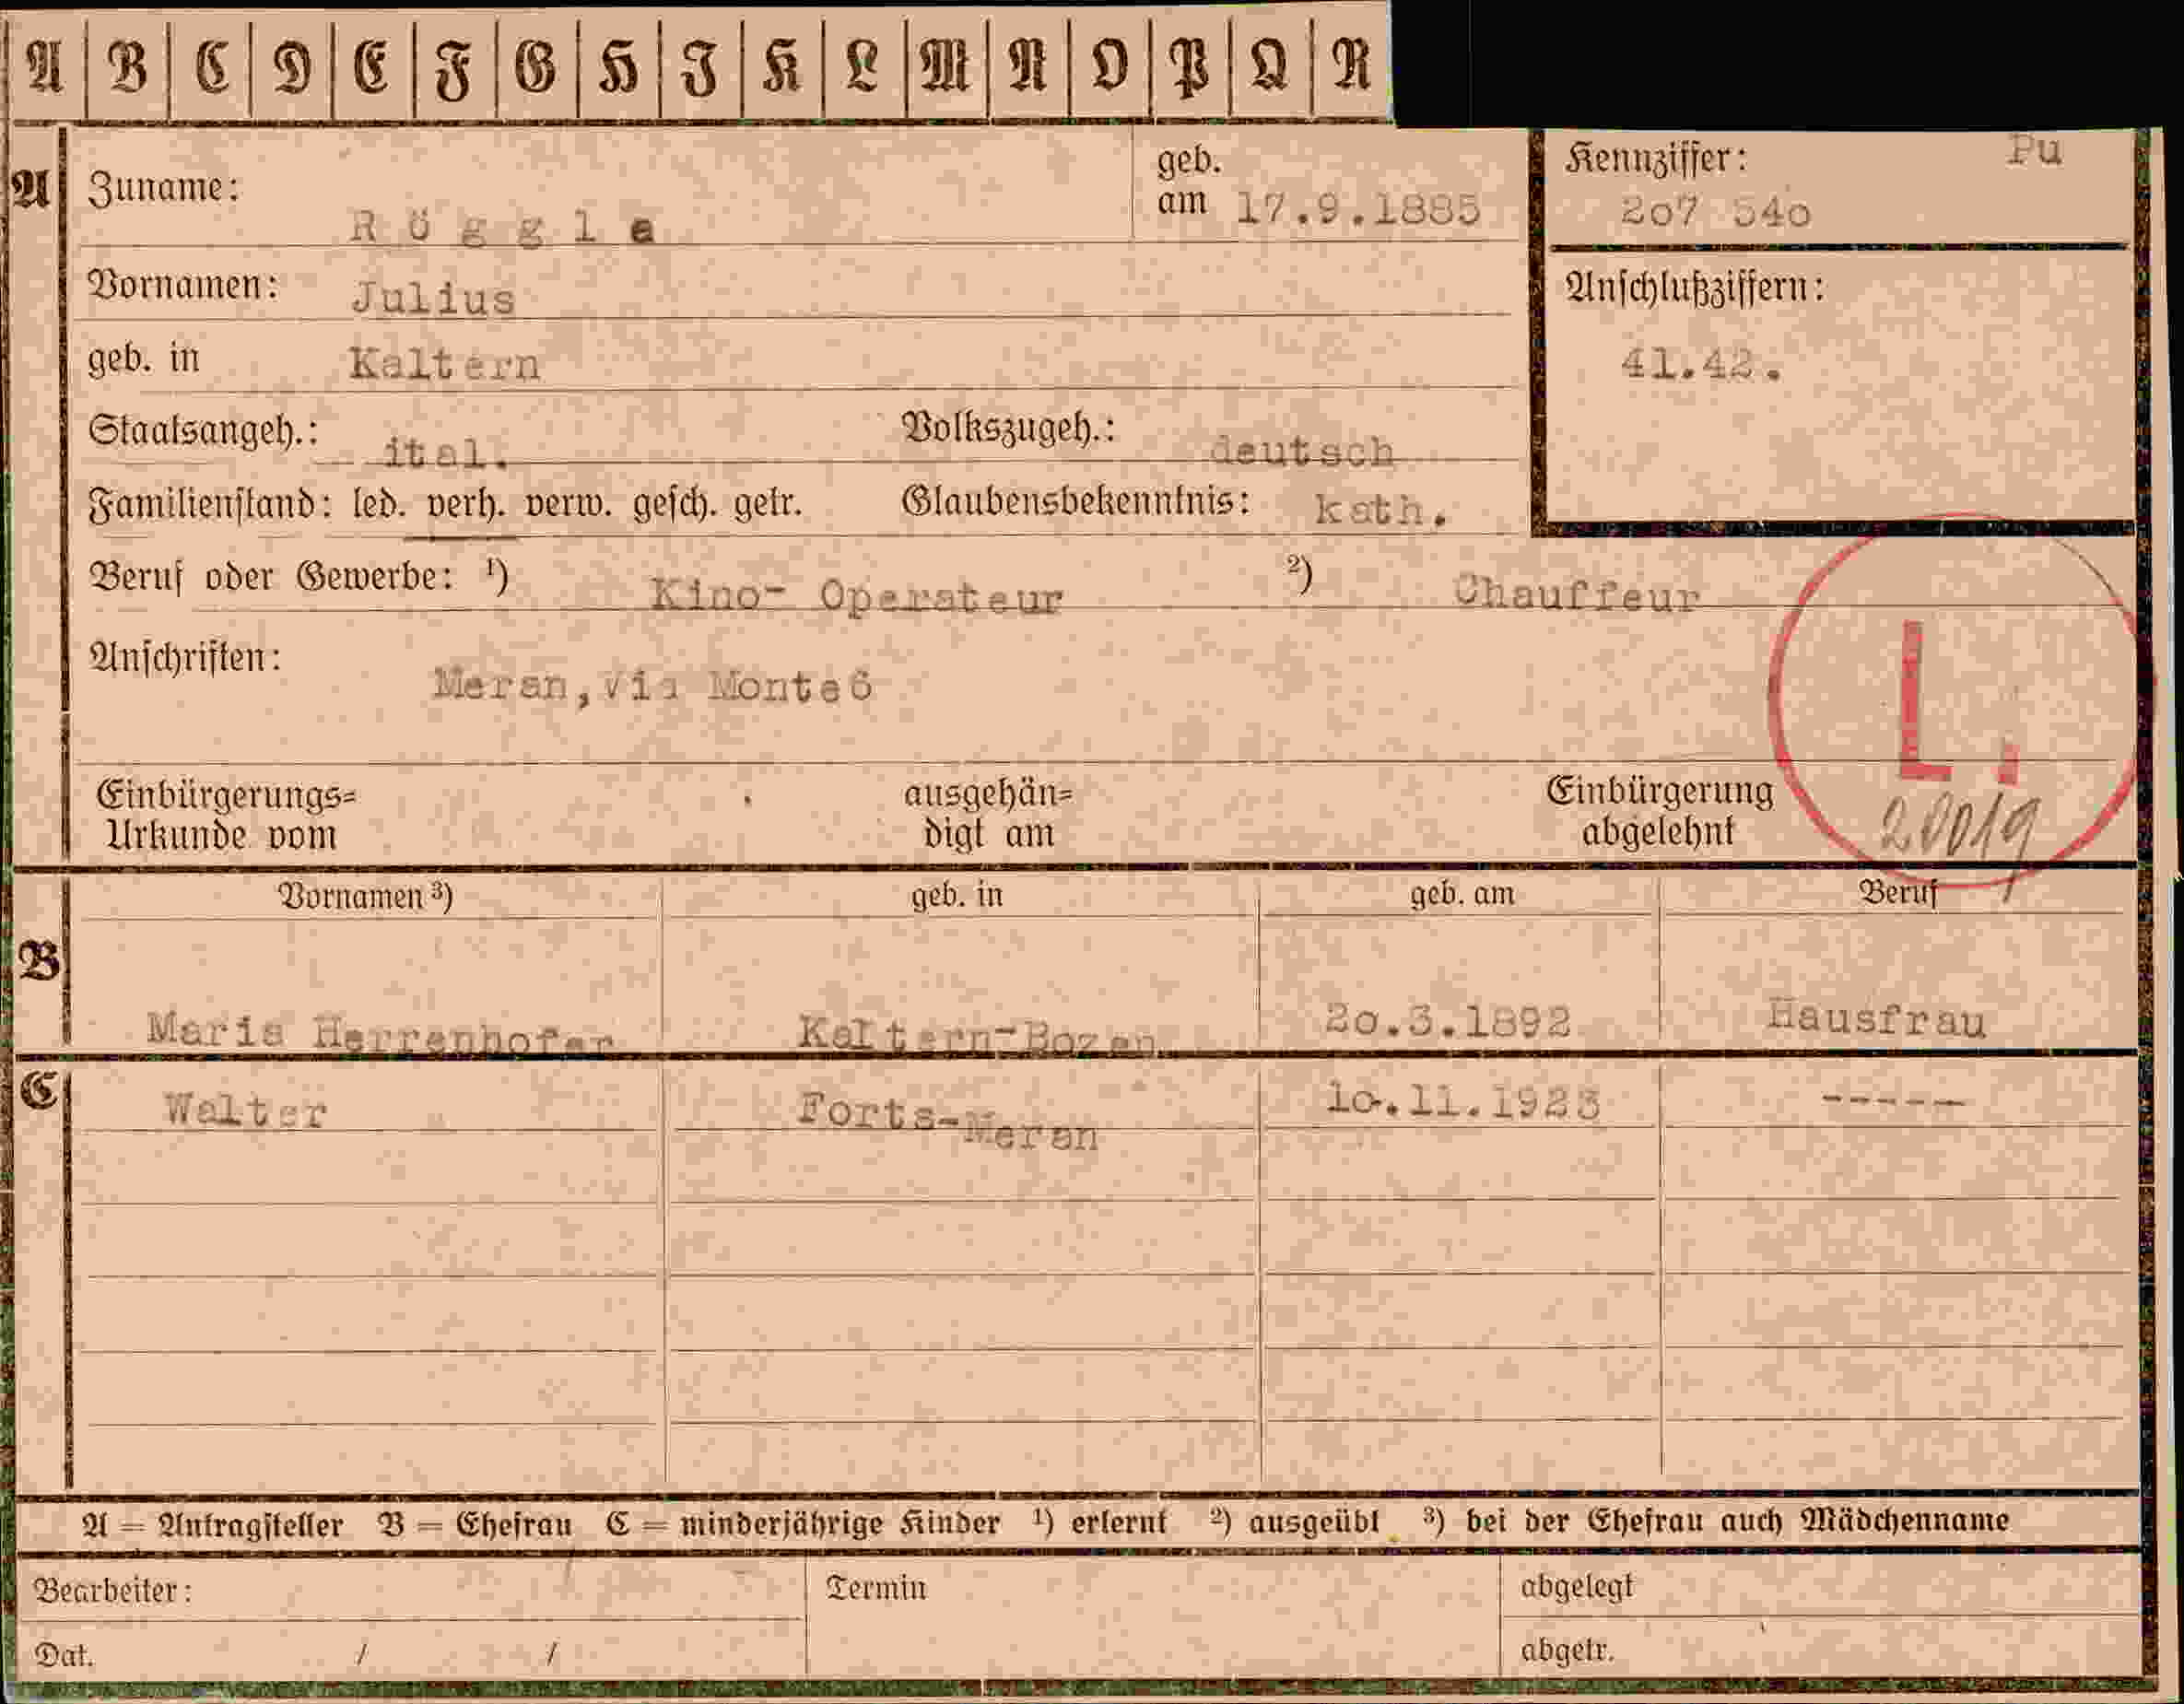 A B C D E F G H J K L M N O P Q R
A Zuname: R ö g g l a geb. am 17.9.1885
Kennziffer: Pu
2o7 54o
Vornamen: Julius
Anschlußziffern:
41.42.
geb. in Kaltern
Staatsangeh.: ital. Volkszugeh.: deutsch
Familienstand: led. verh. verw. gesch. getr. Glaubensbekenntnis: kath.
Beruf oder Gewerbe: ¹) Kino- Operateur ²) Chauffeur
Anschriften: Meran,via Monte6
L.
20019
Einbürgerungs= ausgehän= Einbürgerung
Urkunde vom digt am abgelehnt
Vornamen ³) geb. in geb. am Beruf
B Maria Herrenhofer Kaltern-Bozen 2o.3.1892 Hausfrau
C Walter Forts-Meran 1o.11.1923 -----
A = Antragsteller B = Ehefrau C = minderjährige Kinder ¹) erlernt ²) ausgeübt ³) bei der Ehefrau auch Mädchenname
Bearbeiter: Termin abgelegt
Dat. / / abgetr.